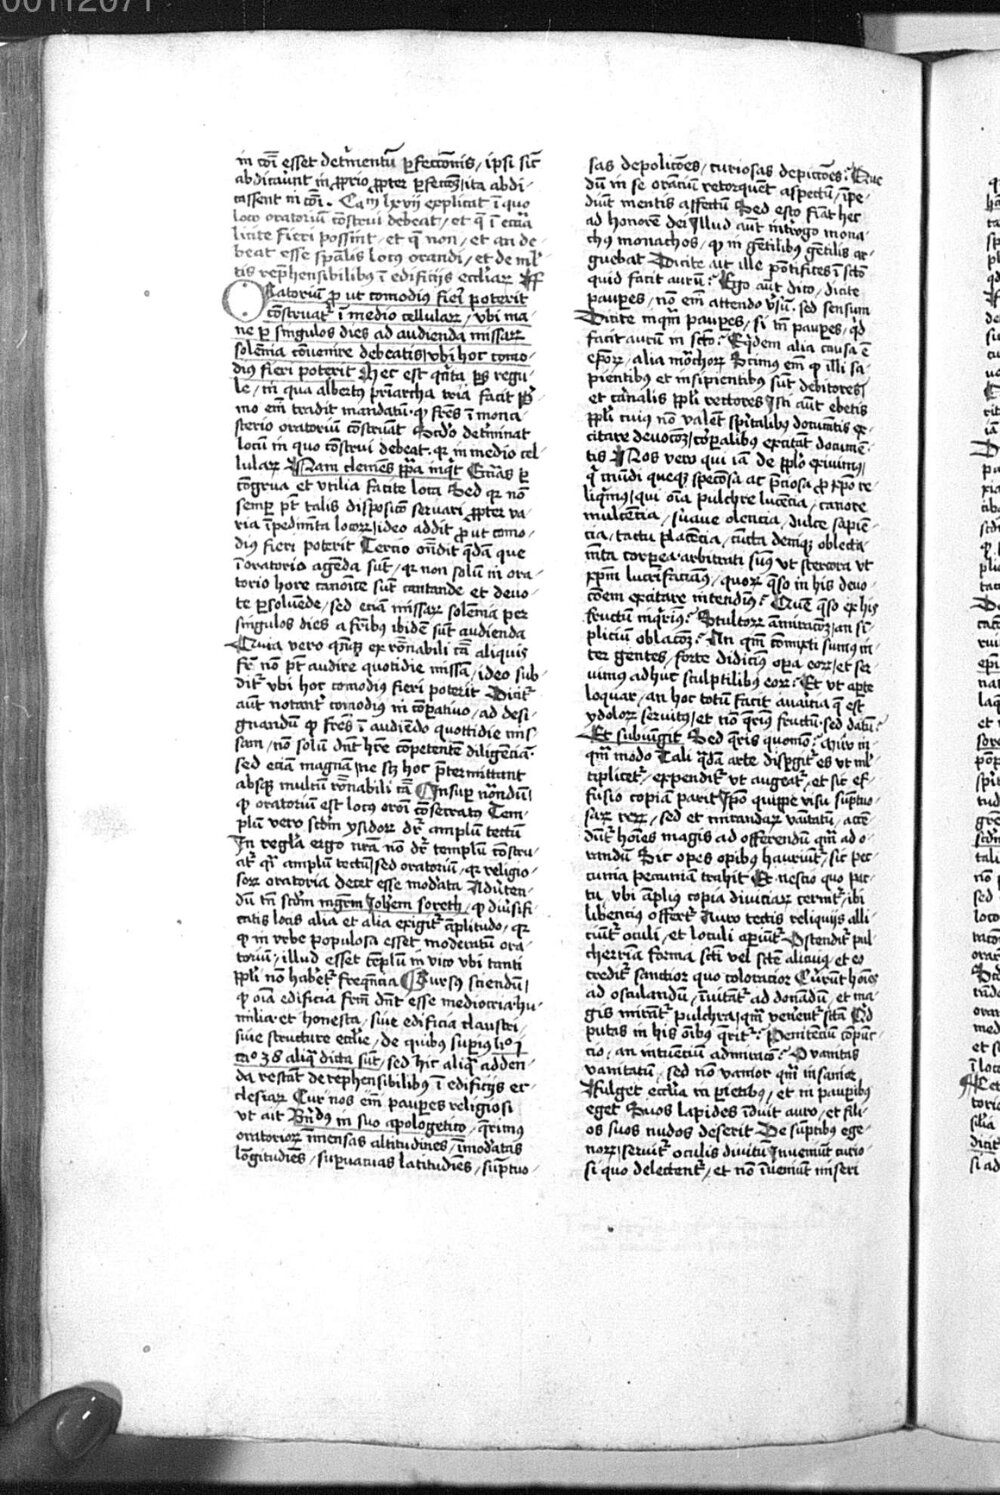 00112071
in cōi esset detrimentū ꝑfectōnis, ipsi sic̄
abdicauūt in ꝓprio ꝓpter ꝑfectōꝫ ita abdi-
cassent in cōi. Cam lxvij explicat ī quo
loco oratoriū cōstrui debeat, et q̄ ī eccl̄ia
licite fieri possint, et q̄ non, et an de-
beat esse spālis locꝯ orandi, et de ml̄-
tis rep̄hensibilibꝯ ī edificijs eccl̄iaꝝ
Oratoriū ꝓ ut comodiꝯ fieri poterit
cōstruatʳ ī medio cellulaꝝ, vbi ma-
ne ꝑ singulos dies ad audienda missaꝝ
solēnia cōuenire debeatis, vbi hoc como-
diꝯ fieri poterit Hec est qn̄ta ꝑs regu-
le, in qua albertꝯ p̄riarcha tria facit Pⁱ-
mo em̄ tradit mandatū, ꝙ fr̄es ī mona-
sterio oratoriū cōstruāt Scd̄o det̄minat
locū in quo cōstrui debeat, qꝛ in medio cel-
lulaꝝ Nam clemēs p̄p̄a inqͥt Eccl̄ias ꝑ
cōgrua et vtilia facite loca Sed qꝛ nō
semꝑ pt̄ talis disposicō seruari ꝓpter va-
ria īpedim̄ta locoꝝ, ideo addit ꝓ ut como-
diꝯ fieri poterit Tercio on̄dit q̄dā que
ī oratorio agēda sūt, qꝛ non solū in ora-
torio hore canonice sūt cantande et deuo-
te ꝑsoluēde, sed eciā missaꝝ solēnia per
singulos dies a fr̄ibꝯ ibidē sūt audienda
Quia vero qn̄qꝫ ex rōnabili cā aliquis
fr̄ nō pt̄ audire quotidie missā, ideo sub-
ditʳ vbi hoc comodiꝯ fieri poterit Dicitʳ
aūt notant̄ comodiꝯ in cōparatiuo, ad desi-
gnandū ꝙ fr̄es ī audiēdo quottidie mis-
sam, nō solū dn̄t hr̄e cōpetentē diligēciā
sed eciā magnā, ne sꝫ hoc p̄termittant
absqꝫ multū rōnabili cā Insuꝑ nōndū
ꝙ oratoriū est locꝯ oroī cōsecratꝯ Tem-
plū vero scd̄m ysidoꝝ dr̄ amplū tectū
In regl̄a ergo nr̄a nō dr̄ templū cōstru-
atʳ qͣi amplū tectū, sed oratoriū, qꝛ religio-
soꝝ oratoria decet esse mod̄ata Aduten-
dū tn̄ scd̄m mgr̄m Joh̄em soreth, ꝙ diu̓sifi-
catis locis alia et alia exigitʳ āplitudo, qꝛ
ꝙ in vrbe populosa esset moderatū ora-
toriū, illud esset tēplū in vico vbi tanti
ppl̄i nō habetʳ freqn̄cia Rursꝯ sciendū,
ꝙ oīa edificia fr̄m dn̄t esse mediocria hu-
milia et honesta, siue edificia claustri
siue structure eccl̄ie, de quibꝯ supiꝯ liº j
caº 38 aliqͣ dicta sūt, sed hic aliqͣ adden-
da restāt de rep̄hensibilibꝯ ī edificijs ec-
clesiaꝝ Cur nos em̄ pauꝑes religiosi
vt ait Bn̄dꝯ in suo apologetico, q̄rimꝯ
oratorioꝝ īmensas altitudīes, īmod̄atas
lōgitudīes, supuacuas latitudīes, sūptuo-
sas depolicōes, curiosas depictōes? Que
dū in se oranciū retorquēt aspectū, īpe-
diūt mentis affectū Sed esto fiāt hec
ad honorē dei Illud aūt int̓rogo mona-
chꝯ monachos, ꝙ in gētilibꝯ gētilis ar-
guebat Dicite ait ille pōtifices ī scō
quid facit aurū? Ego aūt dico, dicite
pauꝑes, nō em̄ attendo v̓sū, sed sensum
Dicite inqͣm pauꝑes, si tn̄ pauꝑes, qͥd
facit aurū in scō? Eqͥdem alia causa ē
ep̄oꝝ, alia mōchoꝝ Scimꝯ em̄ ꝙ illi sa-
pientibꝯ et insipientibꝯ sūt debitores
et carnalis ppl̄i rectores Isti aūt ebetis
ppl̄i cuiꝯ nō valēt sp̄ritalibꝯ documētis ex-
citare deuocōꝫ, corꝑalibꝯ excitāt documē-
tis Nos vero qui iā de ppl̄o exiuimꝯ,
qͥ mūdi queqꝫ speciosa ac p̄ciosa ꝓ xp̄o re-
liqͥmꝯ, qui oīa pulchre lucēcia, canore
mulcēcia, suaue olencia, dulce sapiē-
cia, tactu placēcia, cūcta deniqꝫ oblecta-
m̄ta corꝑea arbitrati sumꝯ vt stercora vt
xp̄m lucrifaciamꝯ, quoꝝ q̄so in his deuo-
cōem excitare intendimꝯ? Quē q̄so ex his
fructū inqͥrimꝯ? Stultoꝝ āmiracōꝫ, an si-
pliciū oblacōꝫ? An qm̄ cōmixti sumꝯ in-
ter gentes, forte didicimꝯ oꝑa eoꝝ, et ser-
uimꝯ adhuc sculptilibꝯ eoꝝ? Et vt aꝑte
loquar, an hoc totū facit auaricia q̄ est
ydoloꝝ seruitꝯ, et nō q̄rimꝯ fructū, sed datū?
Et subiungit Sed q̄ris quomō? Miro in-
qͣm modo Tali qͣdā arte disꝑgitʳ es vt ml̄-
tiplicetʳ, expenditʳ vt augeatʳ, et sic ef-
fusio copiā parit Ip̄o quippe visu sūptuo-
saꝝ reꝝ, sed et mirandaꝝ vanitatū, accē-
dūtʳ hoīes magis ad offerendū qͣm ad o-
randū Sic opes opibꝯ hauriūtʳ, sic pec-
cunia pecuniā trahit Et nescio quo pac-
tu, vbi āplius copia diuiciaꝝ cernitʳ, ibi
libencius offertʳ Auro tectis reliquijs alli-
ciūtʳ oculi, et loculi aꝑiūtʳ Ostenditʳ pul-
cherrīa forma scī vel scē alicuiꝯ, et eo
creditʳ sanctior quo coloracior Currūt hoīes
ad osculandū, īuitātʳ ad donādū, et ma-
gis mirātʳ pulchra, qͣm venerātʳ scā Qͥd
putas in his oībꝯ q̄ritʳ? Penitenciū cōpūc-
cio, an intuenciū admiracō? O vanitas
vanitatū, sed nō vanior qͣm insanior
Fulget eccl̄ia in pietibꝯ, et in pauꝑibꝯ
eget Suos lapides īduit auro, et fili-
os suos nudos deserit De sūptibꝯ ege-
noꝝ, seruitʳ oculis diuitū Inueniūt curio-
si quo delectentʳ, et nō īueniūt miseri